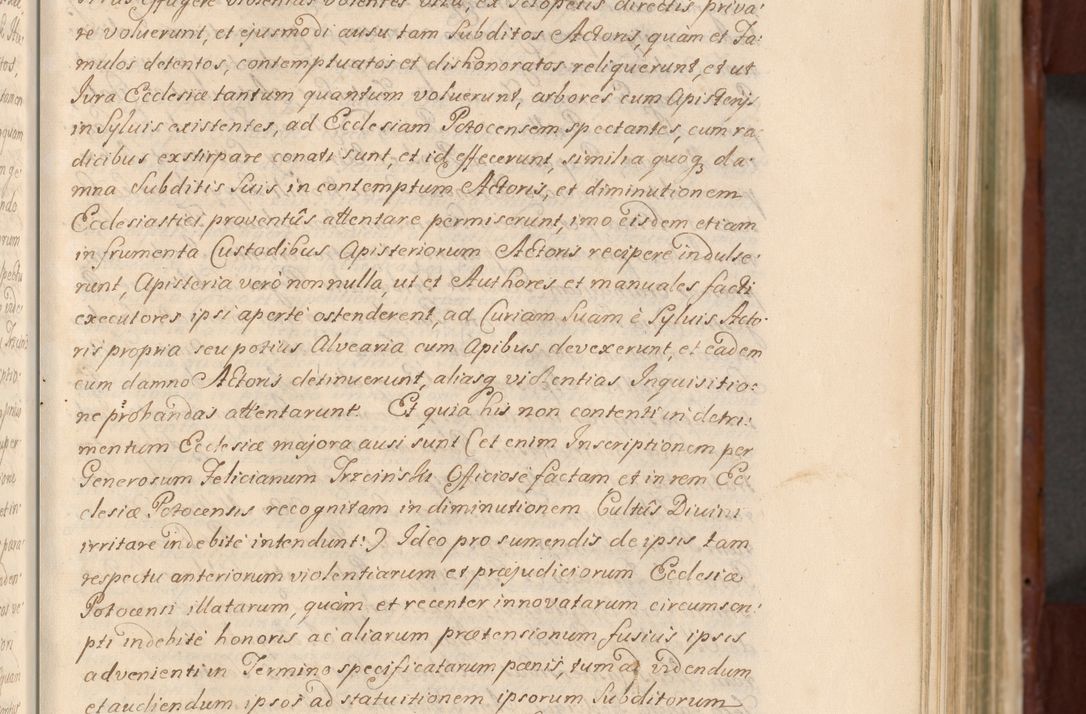 re voluerunt, et ejusmodi ausu tam Subditos Actoris, quam et Fa:
mulos detentos, contemptuatos et dishonoratos reliquerunt, et ut
Jura Ecclesiæ tantum quantum voluerunt, arbores cum Apisterijs
in Sylvis existentes, ad Ecclesiam Potocensem spectantes, cum ra:
dicibus exstirpare conati sunt, et id effecerunt, similia quoqȝ da:
mna Subditis Suis in contemptum Actoris, et diminutionem
Ecclesiastici proventûs attentare permiserunt, imo eisdem etiam
in frumenta Custodibus Apisteriorum Actoris recipere indulse:
runt, Apisteria verò nonnulla, ut et Authores et manuales facti
executores ipsi apertè ostenderent, ad Curiam Suam è Sylvis Acto:
ris propria seu potius Alvearia cum Apibus devexerunt, et eadem
cum damno Actoris detinuerunt, aliasq violentias Inquisitio:
ne probandas attentarunt. Et quia his non contenti in detri:
mentum Ecclesiæ majora ausi sunt (et enim Inscriptionem per
Generosum Felicianum Trzciński Officiosè factam et in rem Ec:
clesiæ Potocensis recognitam in diminutionem Cultûs Divini
irritare indebitè intendunt!) Ideo pro sumendis de ipsis tam
respectu anteriorum violentiarum et præjudiciorum Ecclesiæ
Potocensi illatarum, quàm et recenter innovatarum circumscri:
pti indebitè honoris ac aliarum prætensionum fusius ipsis
advenienti in Termino specificatarum pœnis, tum ad videndum
et audiendum ipsos ad statuitionem ipsorum Subditorum